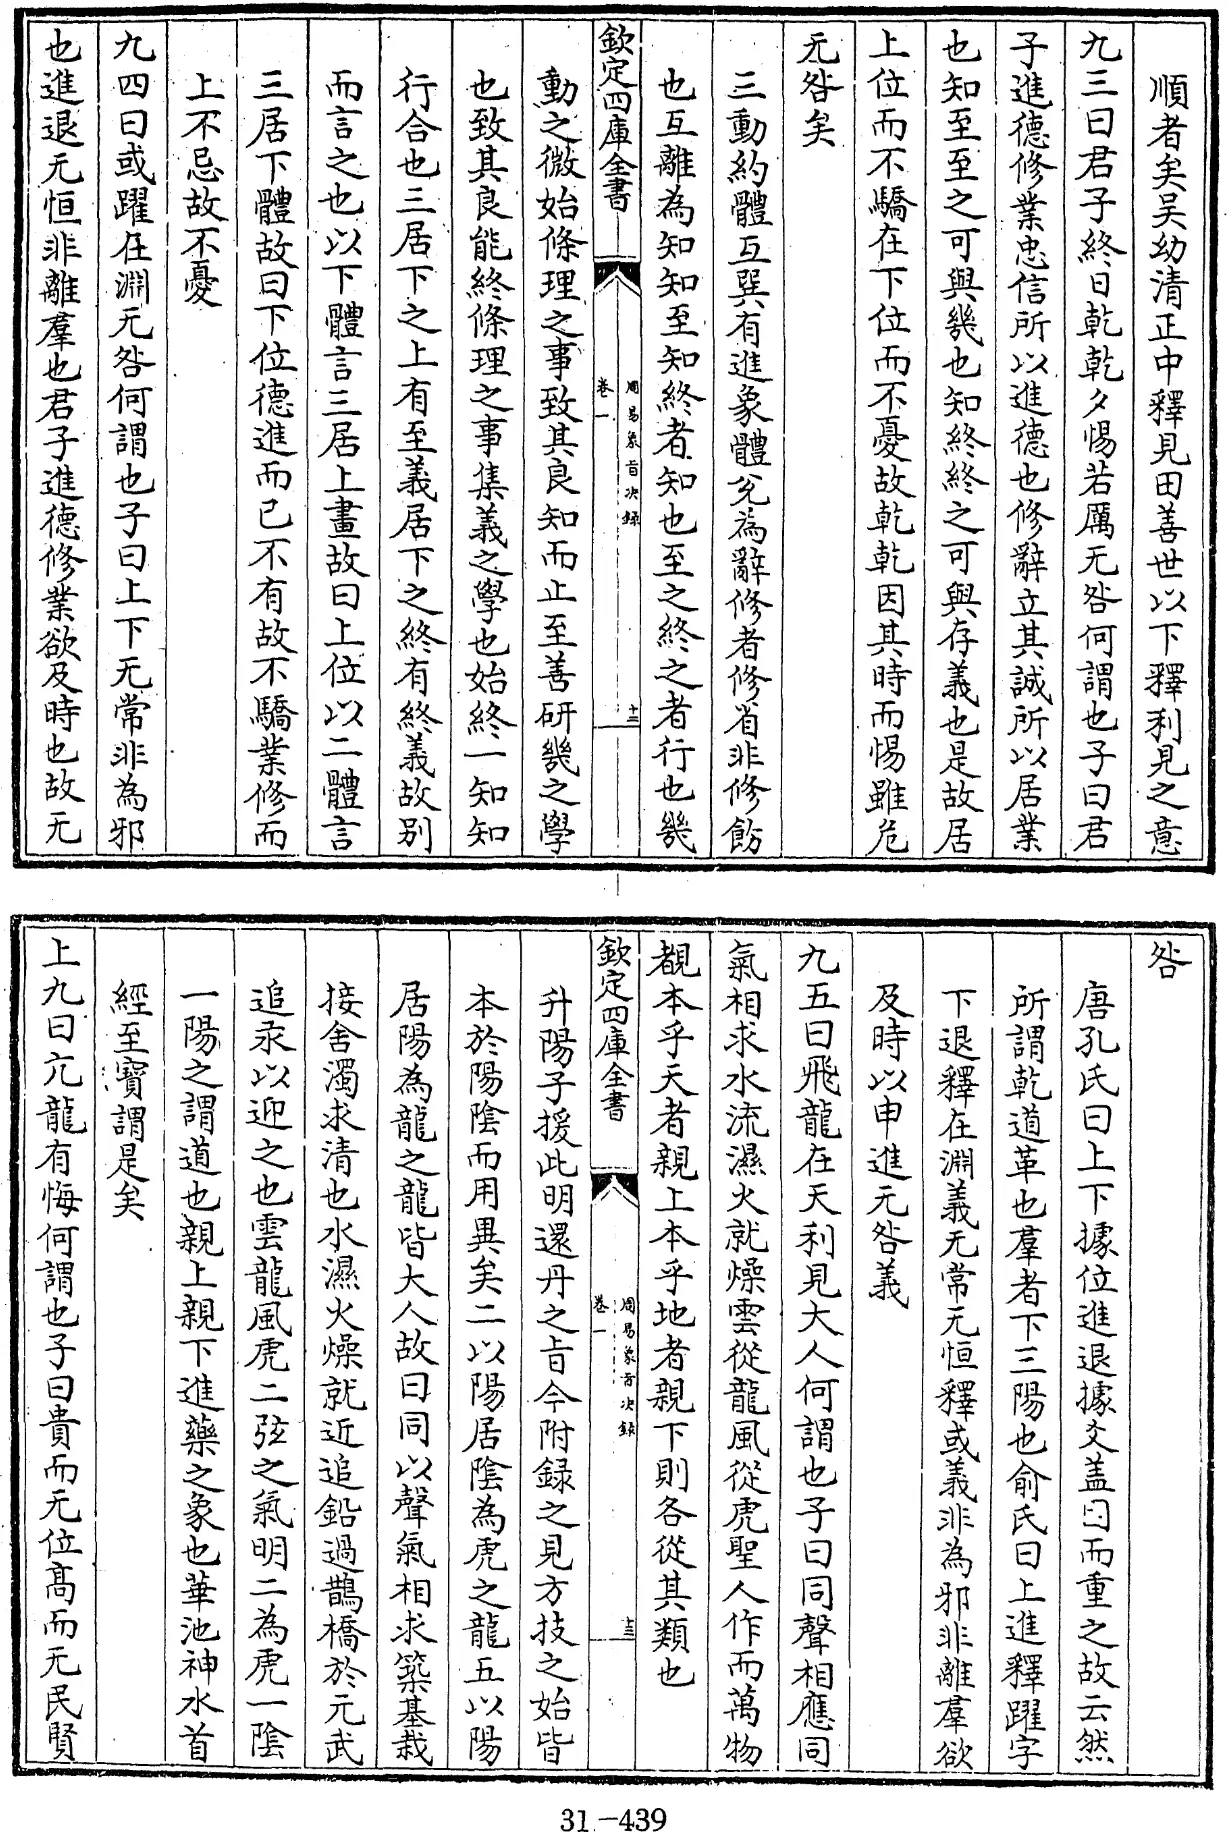 順者矣吴幼清正中釋見田善世以下釋利見之意
九三曰君子終日乾乾夕惕若厲无咎何謂也子曰君
子進德修業忠信所以進德也修辭立其誠所以居業
也知至至之可與幾也知終終之可與存義也是故居
上位而不驕在下位而不憂故乾乾因其時而惕雖危
无咎矣
三動約體互巽有進象體兊為辭修者修省非修飭
也互離為知知至知終者知也至之終之者行也幾
欽定四庫全書
周易象旨決録
卷一
十二
動之微始條理之事致其良知而止至善研幾之學
也致其良能終條理之事集義之學也始終一知知
行合也三居下之上有至義居下之終有終義故别
而言之也以下體言三居上畫故曰上位以二體言
三居下體故曰下位德進而已不有故不驕業修而
上不忌故不憂
九四曰或躍在淵无咎何謂也子曰上下无常非為邪
也進退无恒非離羣也君子進德修業欲及時也故无
咎
唐孔氏曰上下據位進退據爻盖因而重之故云然
所謂乾道革也羣者下三陽也俞氏曰上進釋躍字
下退釋在淵義无常无恒釋或義非為邪非離羣欲
及時以申進无咎義
九五曰飛龍在天利見大人何謂也子曰同聲相應同
氣相求水流濕火就燥雲從龍風從虎聖人作而萬物
覩本乎天者親上本乎地者親下則各從其類也
欽定四庫全書
周易象旨決録
卷一
十三
升陽子援此明還丹之旨今附録之見方技之始皆
本於陽陰而用異矣二以陽居陰為虎之龍五以陽
居陽為龍之龍皆大人故曰同以聲氣相求築基栽
接舍濁求清也水濕火燥就近追鉛過鵲橋於元武
追汞以迎之也雲龍風虎二弦之氣明二為虎一陰
一陽之謂道也親上親下進藥之象也華池神水首
經至寶謂是矣
上九曰亢龍有悔何謂也子曰貴而无位髙而无民賢
31-439